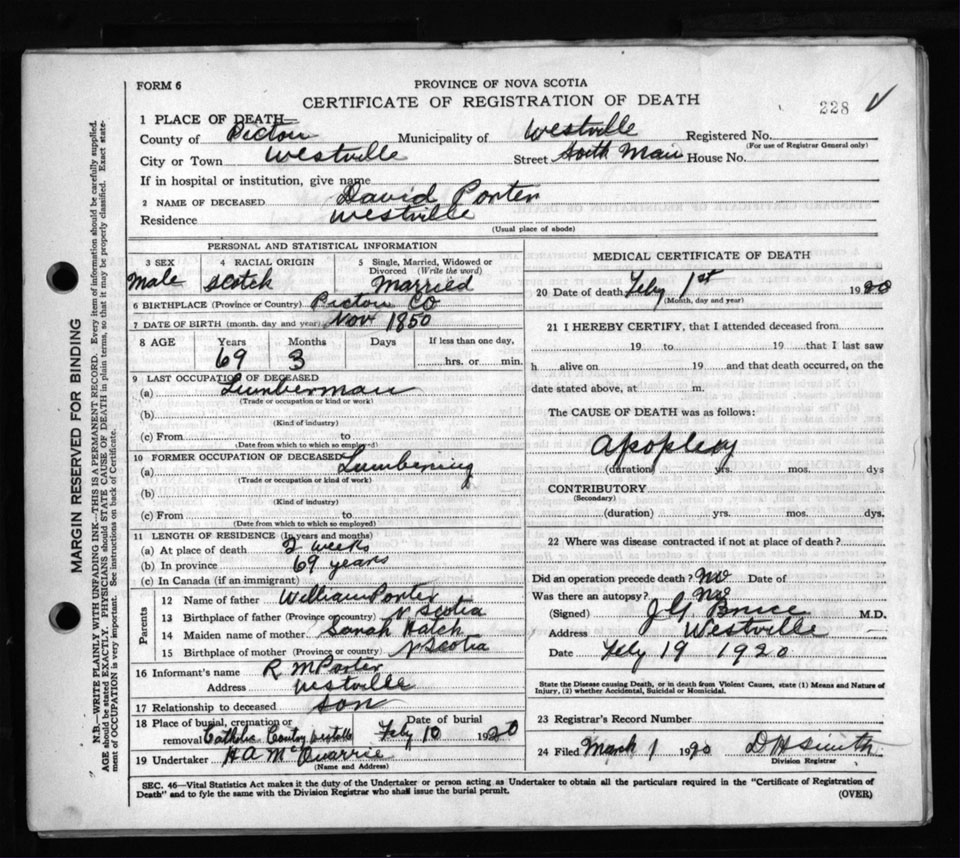 FORM 6
PROVINCE OF NOVA SCOTIA
CERTIFICATE OF REGISTRATION OF DEATH
228
1 PLACE OF DEATH—
County of Pictou Municipality of Westville Registered No.
(For use of Registrar General only)
City or Town Westville Street South Main House No.
If in hospital or institution, give name
2 NAME OF DECEASED David Porter
Residence Westville
(Usual place of abode)
PERSONAL AND STATISTICAL INFORMATION
3 SEX 4 RACIAL ORIGIN 5 Single, Married, Widowed or Divorced (Write the word)
Male Scotch Married
6 BIRTHPLACE (Province or Country) Pictou Co
7 DATE OF BIRTH (month, day and year) Nov 1850
8 AGE Years Months Days If less than one day,
69 3 hrs. or min.
9 LAST OCCUPATION OF DECEASED
(a) Lumberman
(Trade or occupation or kind of work)
(b)
(Kind of industry)
(c) From to
(Date from which to which so employed)
10 FORMER OCCUPATION OF DECEASED
(a) Lumbering
(Trade or occupation or kind of work)
(b)
(Kind of industry)
(c) From to
(Date from which to which so employed)
11 LENGTH OF RESIDENCE (In years and months)
(a) At place of death 2 weeks
(b) In province 69 years
(c) In Canada (if an immigrant)
Parents
12 Name of father William Porter
13 Birthplace of father (Province or country) N Scotia
14 Maiden name of mother Sarah Hatch
15 Birthplace of mother (Province or country) N Scotia
16 Informant's name R M Porter
Address Westville
17 Relationship to deceased Son
18 Place of burial, cremation or removal Catholic Westville Date of burial Feby 10 1920
19 Undertaker H A McQuarrie
(Name and Address)
MEDICAL CERTIFICATE OF DEATH
20 Date of death Feby 1st 1920
(Month, day and year)
21 I HEREBY CERTIFY, that I attended deceased from
19 to 19 that I last saw
h alive on 19 and that death occurred, on the
date stated above, at m.
The CAUSE OF DEATH was as follows:
Apoplexy
(duration) yrs. mos. dys
CONTRIBUTORY
(Secondary)
(duration) yrs. mos. dys.
22 Where was disease contracted if not at place of death?
Did an operation precede death? No Date of
Was there an autopsy? No
(Signed) J G Brice M.D.
Address Westville
Date Feby 19 1920
State the Disease causing Death, or in death from Violent Causes, state (1) Means and Nature of
Injury, (2) whether Accidental, Suicidal or Homicidal.
23 Registrar's Record Number
24 Filed March 1 1920 D H Smith
Division Registrar
SEC. 46—Vital Statistics Act makes it the duty of the Undertaker or person acting as Undertaker to obtain all the particulars required in the "Certificate of Registration of
Death" and to fyle the same with the Division Registrar who shall issue the burial permit.
(OVER)
MARGIN RESERVED FOR BINDING
N.B.—WRITE PLAINLY WITH UNFADING INK—THIS IS A PERMANENT RECORD. Every item of information should be carefully supplied.
AGE should be stated EXACTLY. PHYSICIANS should STATE CAUSE OF DEATH in plain terms, so that it may be properly classified. Exact state-
ment of OCCUPATION is very important. See instructions on back of Certificate.